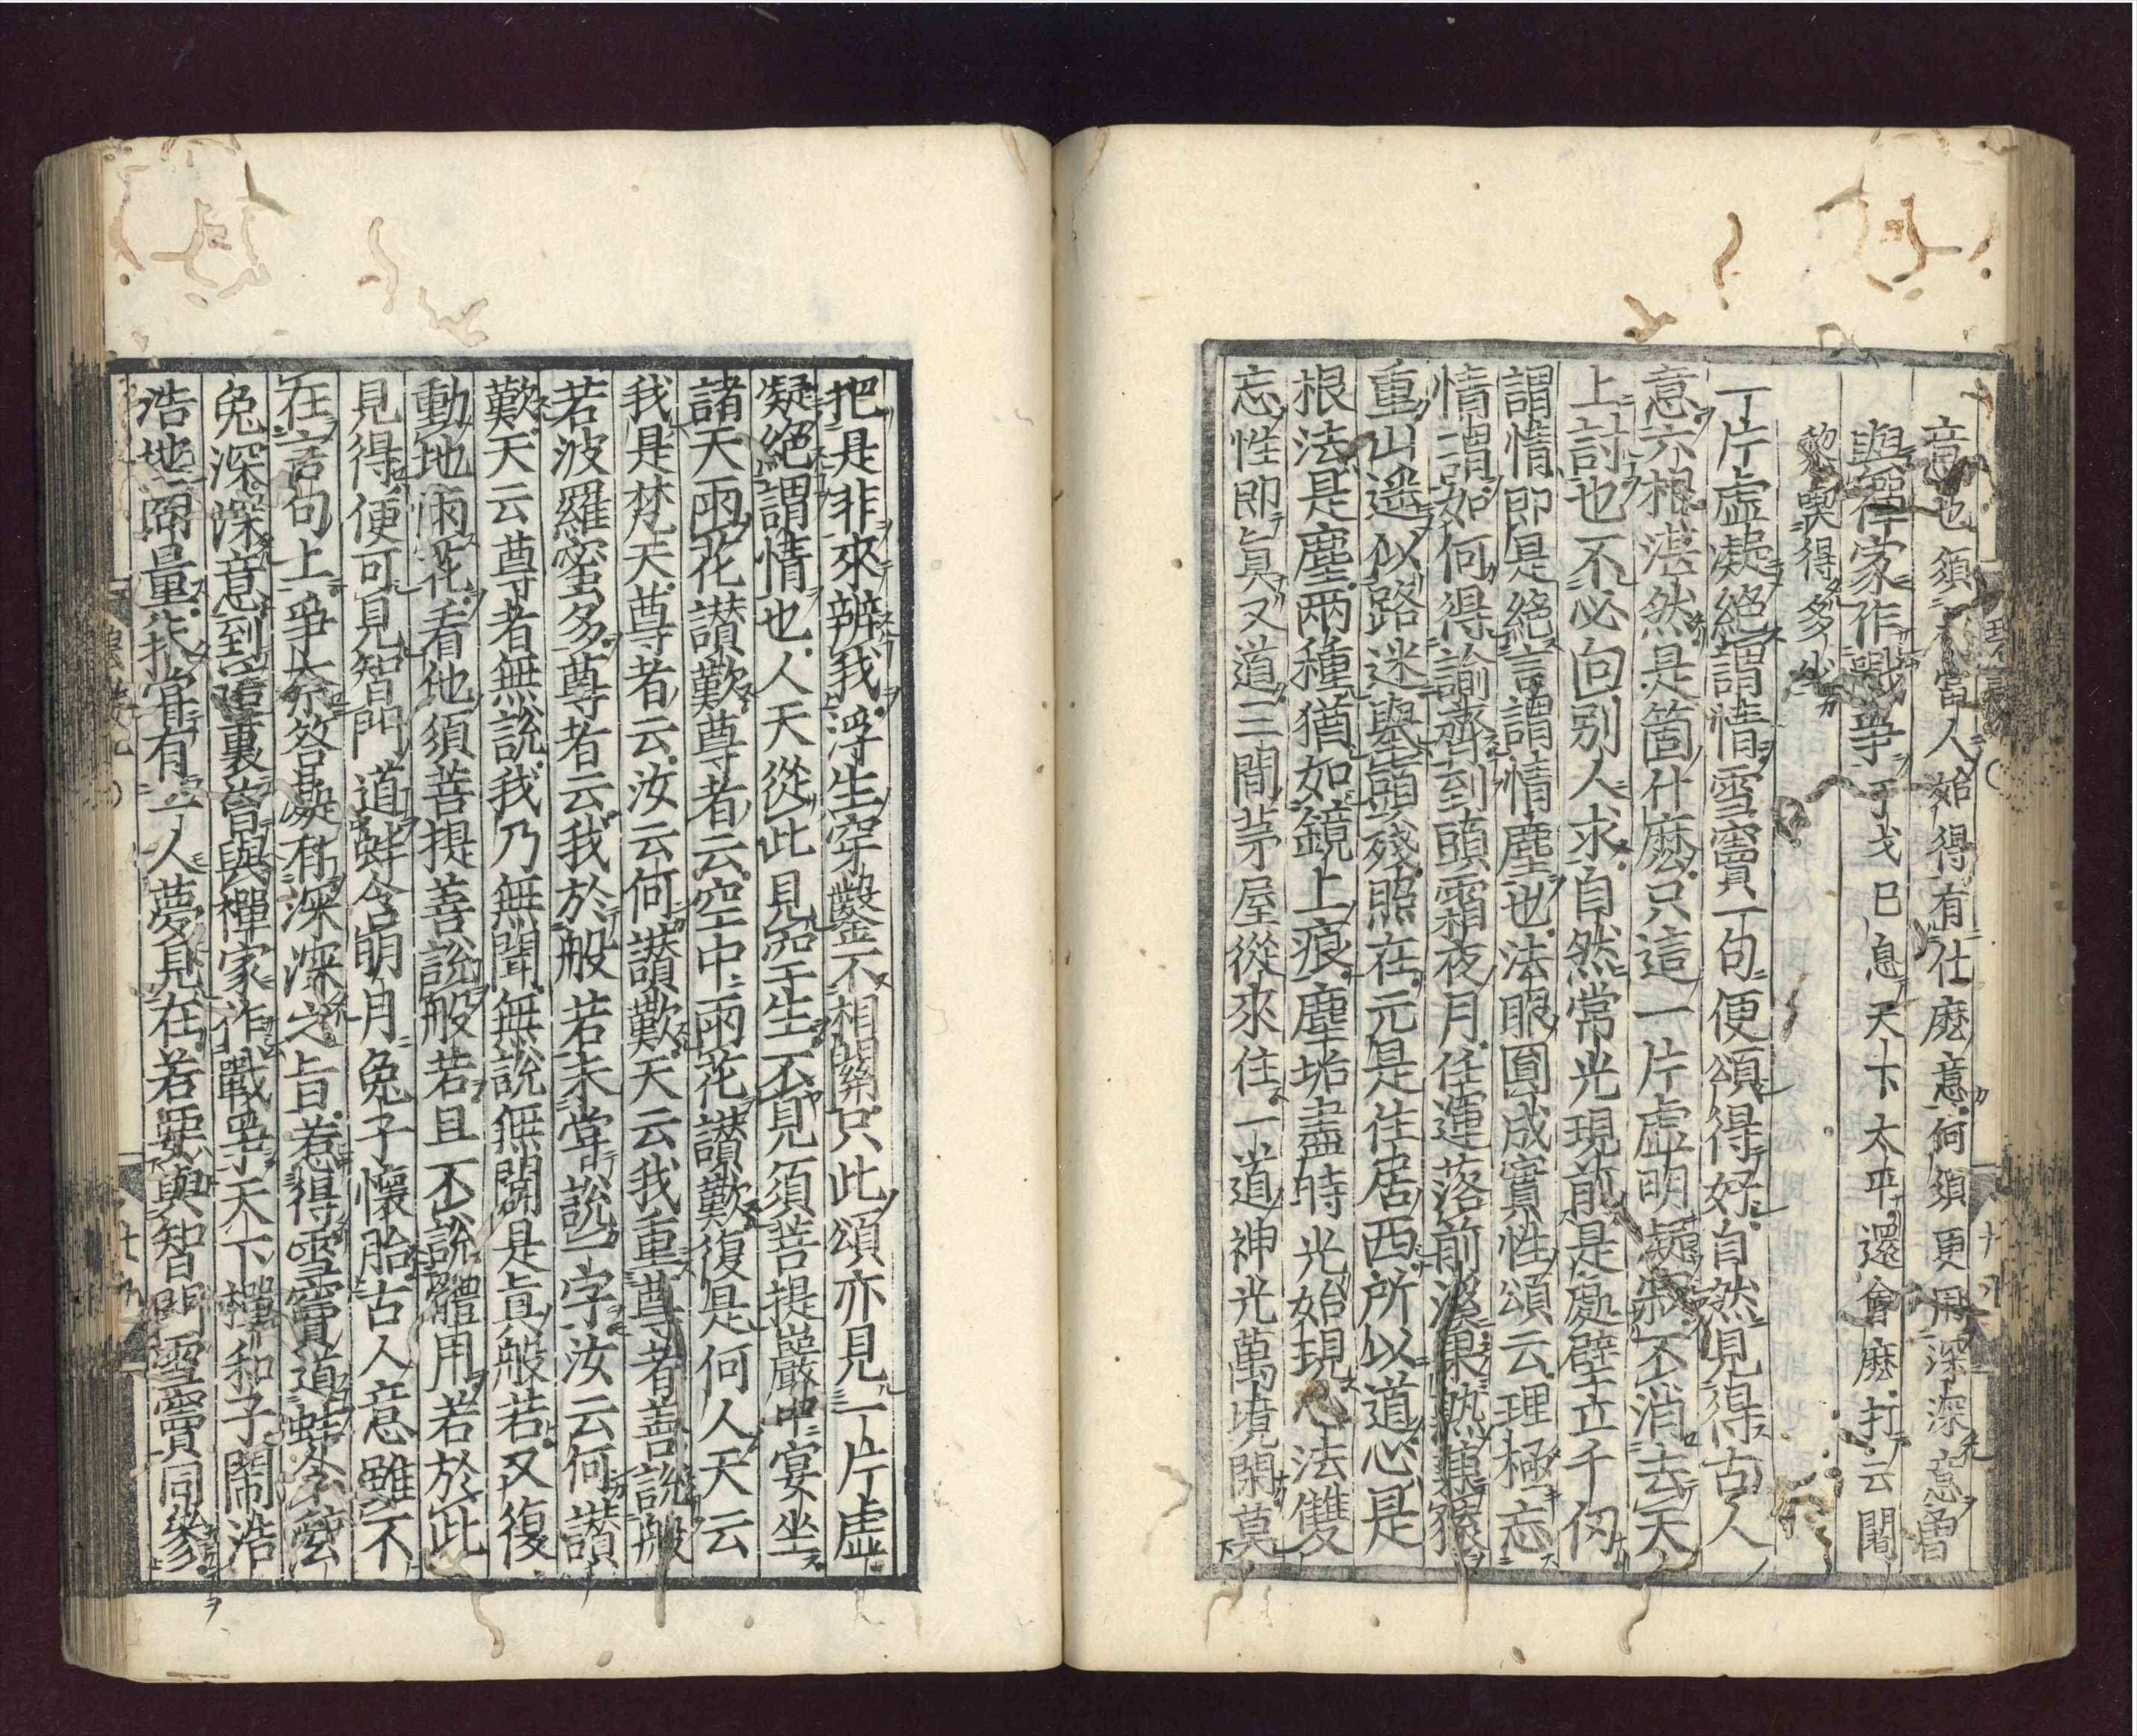 意也須是當人始得有什麼意何須更用深深意曾
與禪家作戰爭干戈已息天下太平還會麼打云闍
黎喫得多少
一片虛凝絕謂情雪竇一句便頌得好自然見得古人
意六根湛然是箇什麼只這一片虛明凝寂不消去天
上討也不必向別人求自然常光現前是處壁立千仞
謂情即是絕言謂情塵也法眼圓成實性頌云理極忘
情謂如何得諭齊到頭霜夜月任運落前溪果熟兼猿
重山遙似路迷舉頭殘照在元是住居西所以道心是
根法是塵兩種猶如鏡上痕塵垢盡時光始現心法雙
忘性即眞又道三間茅屋從來住一道神光萬境閑莫
把是非來辨我浮生穿鑿不相關只此頌亦見一片虛
凝絕謂情也人天從此見空生不見須菩提巖中宴坐
諸天雨花讃歎尊者云空中雨花讃歎復是何人天云
我是梵天尊者云汝云何讃歎天云我重尊者善說般
若波羅蜜多尊者云我於般若未嘗說一字汝云何讃
歎天云尊者無說我乃無聞無說無聞是眞般若又復
動地雨花看他須菩提善說般若且不說體用若於此
見得便可見智門道蚌含明月兔子懷胎古人意雖不
在言句上爭奈答處有深深之旨惹得雪竇道蚌含玄
兔深深意到這裏曾與禪家作戰爭天下禪和子鬧浩
浩地商量未嘗有一人夢見在若要與智門雪竇同參